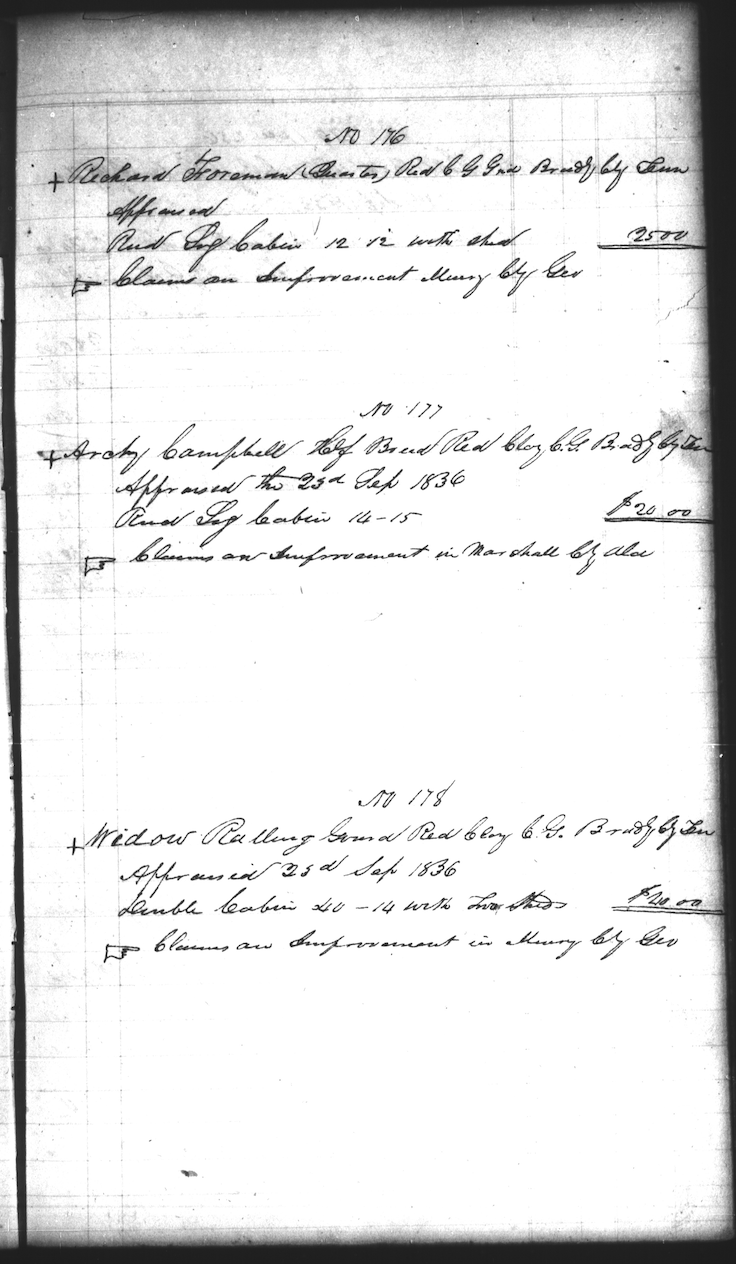 No 176
+ Richard Foreman (Quarter) Red C G Gnd Bradly Cty Tenn
Appraised
Rund Log Cabin 12 12 with shed 25 00
☞ Claims an Improvement Murry Cty Geo
No 177
+ Archy Campbell Hlf Breed Red Clay C. G. Bradly Cty Ten
Appraised the 23d Sep 1836
Rund Log Cabin 14 - 15 $20 00
☞ Claims an Improvement in Marshall Cty Ala
No 178
+ Widow Ratling Gourd Red Clay C. G. Bradly Cty Ten
Appraised 23d Sep 1836
Double Cabin 40 - 14 with Two Sheds $20 00
☞ Claims an Improvement in Murry Cty Geo